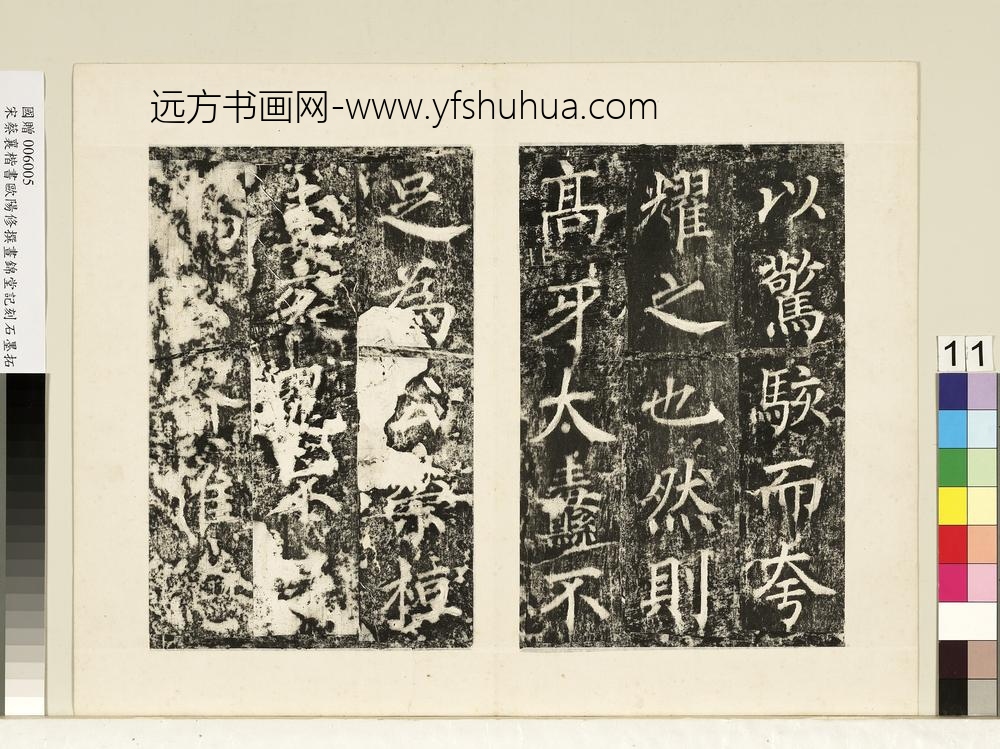 远方书画网-www.yfshuhua.com
國贈006005
宋蔡襄楷書歐陽修撰晝錦堂記刻石墨拓
11
以驚駭而夸
耀之也然則
高牙大纛不
足為公榮桓
圭袞冕不